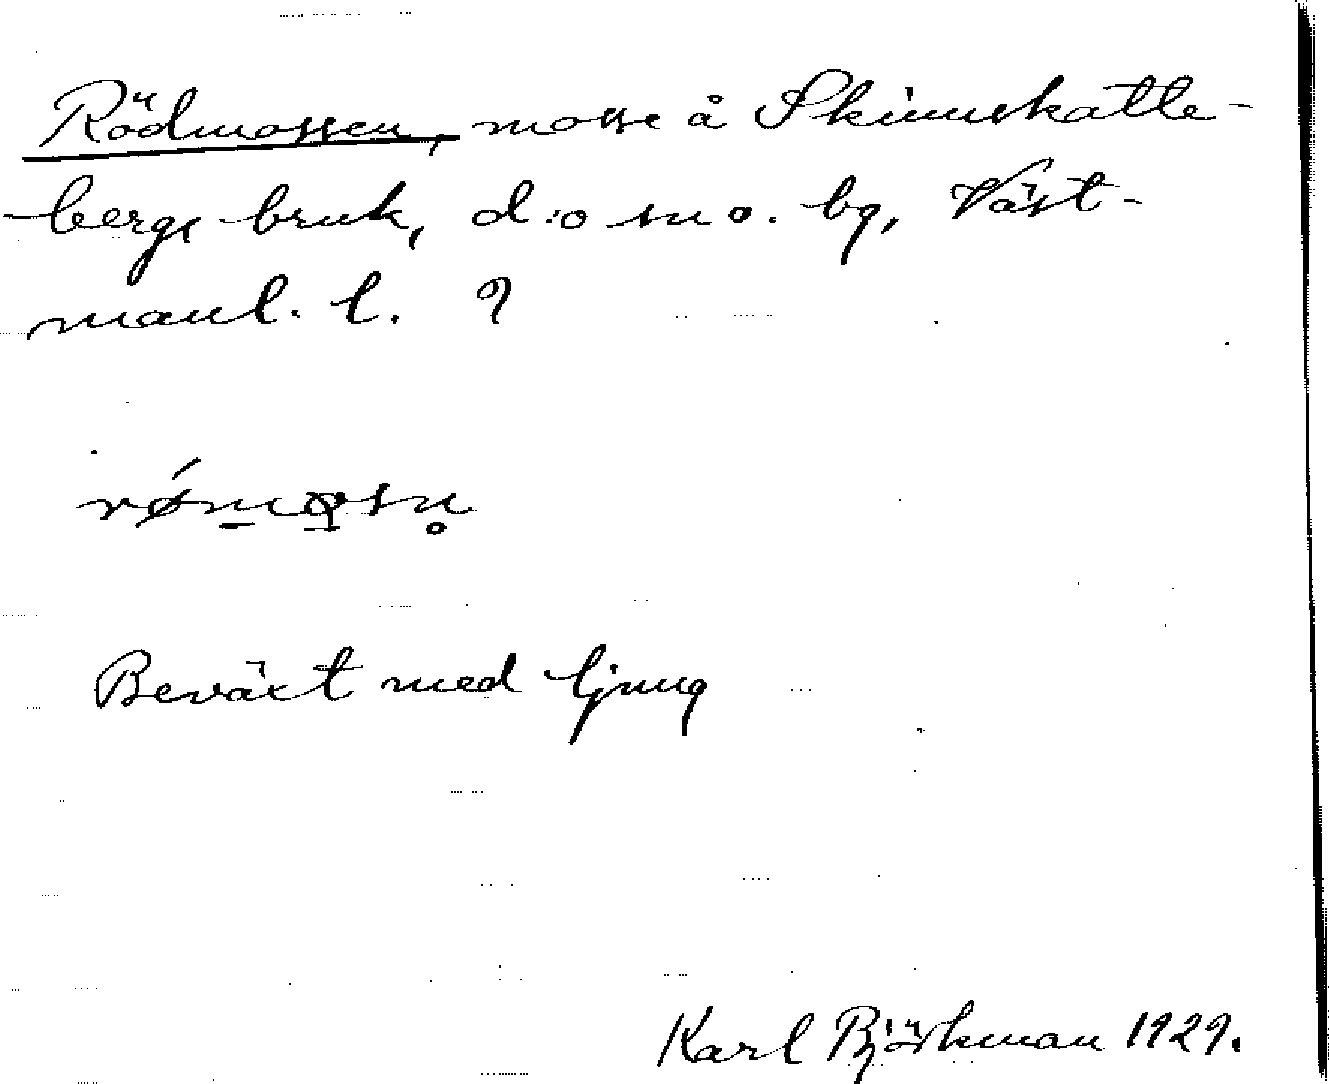 Rödmossen, mosse å Skinnskatte-
bergs bruk, d:o sn o. bg, Väst-
manl. l.
Beväxt med ljung
Karl Björkman 1929.